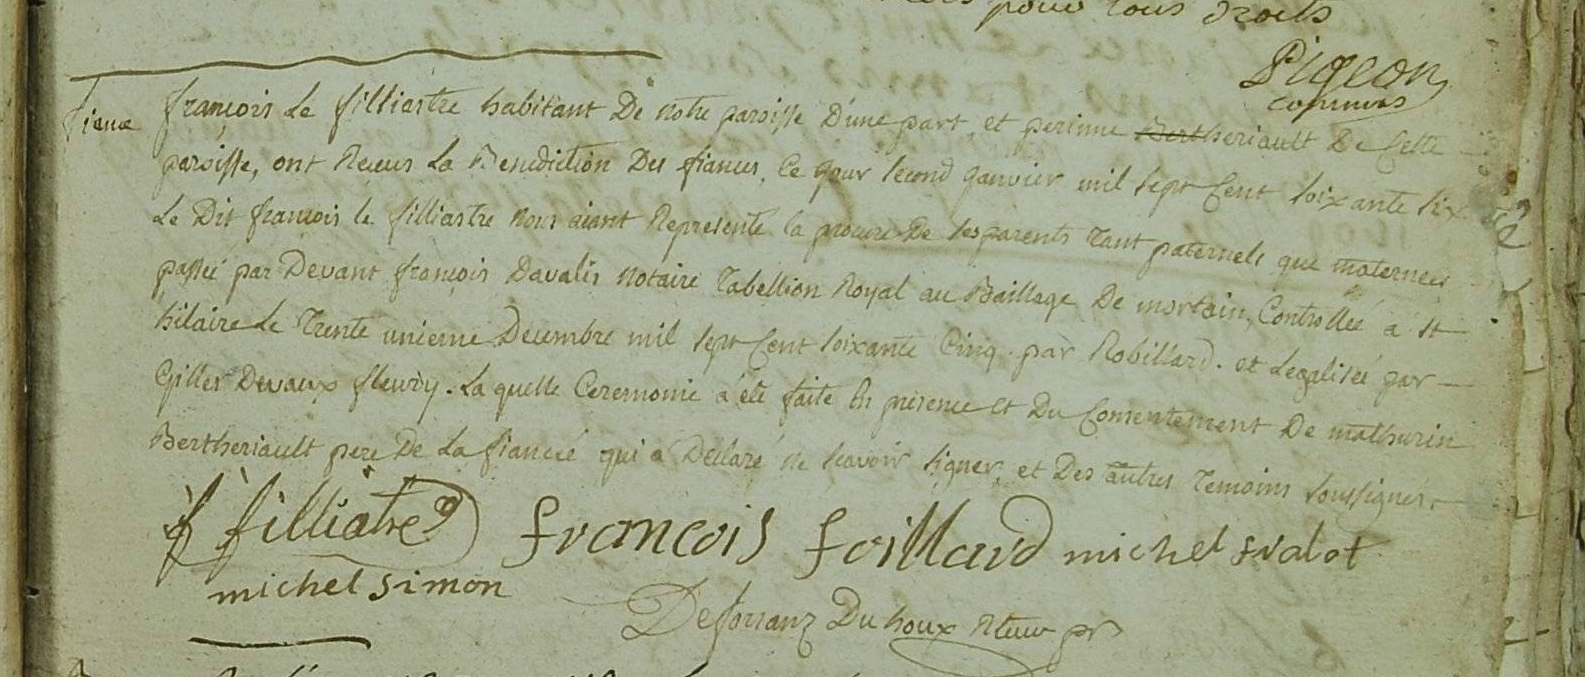 pour tous droits
Pigeon
commis
françois Le filliastre habitant De notre paroisse D'une part, et perinne Bertheriault De Cette
paroisse, ont Receus La Benediction Des fiances, Ce jour second janvier mil sept Cent soixante six
Le Dit françois le filliastre nous aiant Represente la procure De ses parents tant paternels que maternels
passeé par Devant françois Davalis notaire Tabellion Royal au Baillage De mortain, Controlleé a st
hilaire Le Trente unieme Decembre mil sept Cent soixante Cinq par Robillard. et Legaliseé par
Gilles Devaux fleury. La quelle Ceremonie a été faite En presence et Du Consentement De mathurin
Bertheriault pere De La fianceé qui a Declaré ne scavoir signer, et Des autres Temoins soussignés.
f filliatre françois foillard michel
michel simon
Du houx